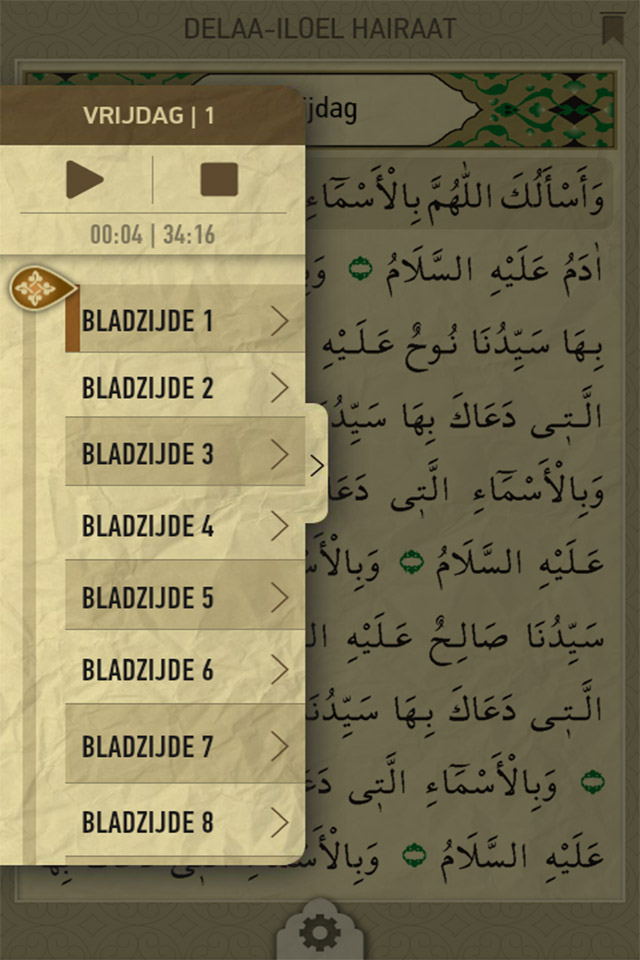 DELAA-ILOEL HAIRAAT
VRIJDAG | 1
00:04 | 34:16
BLADZIJDE 1
BLADZIJDE 2
BLADZIJDE 3
BLADZIJDE 4
BLADZIJDE 5
BLADZIJDE 6
BLADZIJDE 7
BLADZIJDE 8
وَأَسْأَلُكَ اللّٰهُمَّ بِالْأَسْمَٓاءِ
اٰدَمُ عَلَيْهِ السَّلَامُ
بِهَا سَيِّدُنَا نُوحٌ عَلَيْهِ
الَّتِى دَعَاكَ بِهَا
وَبِالْأَسْمَٓاءِ الَّتِى
عَلَيْهِ السَّلَامُ
سَيِّدُنَا صَالِحٌ عَلَيْهِ
الَّتِى دَعَاكَ بِهَا
وَبِالْأَسْمَٓاءِ الَّتِى
عَلَيْهِ السَّلَامُ